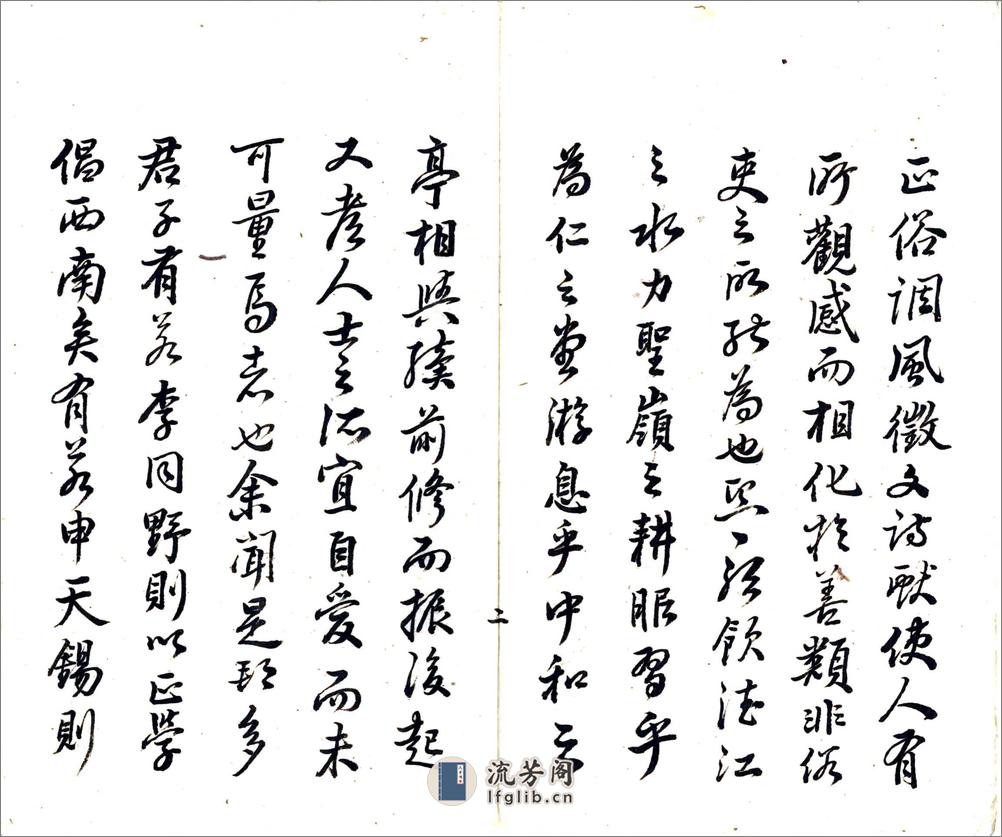 正俗調風徵文訪獻使人有
所觀感而相化於善類非俗
吏之所能為也飲德江
之水力聖嶺之耕服習乎
為仁之堂游息乎中和之
亭相與前修而振後起
又人士之所宜自愛而未
可量焉者也余聞是郡多
君子有若李同野則以正學
倡西南矣有若申天錫則
二
流芳阁
lfglib.cn